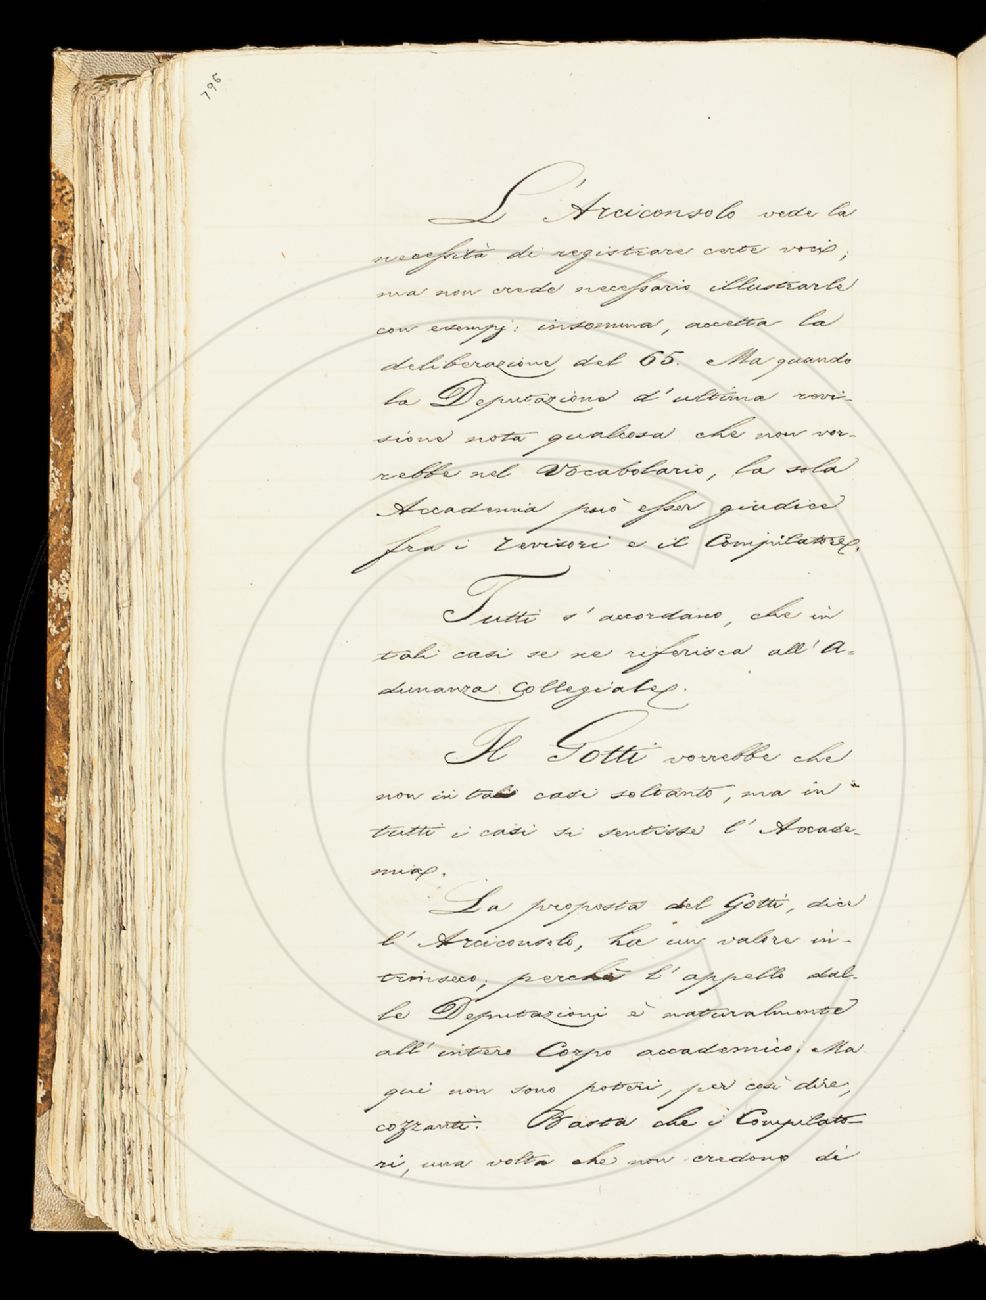 796
L'Arciconsolo vede la
necessità di registrare certe voci;
ma non crede necessario illustrarle
con esempj: insomma, accetta la
deliberazione del 65. Ma quando
la Deputazione d'ultima revi-
sione nota qualcosa che non vor-
rebbe nel Vocabolario, la sola
Accademia può esser giudice
fra i revisori e il Compilatore.
Tutti s'accordano, che in
tali casi se ne riferisca all'A=
dunanza Collegiale.
Il Gotti vorrebbe che
non in tali casi soltanto, ma in
tutti i casi si sentisse l'Accade-
mia.
La proposta del Gotti, dice
l'Arciconsolo, ha un valore in-
trinseco; perchè l'appello dal-
le Deputazioni è naturalmente
all'intero Corpo accademico. Ma
qui non sono poteri, per così dire,
cozzanti. Basta che i Compilato=
ri, una volta che non credono di